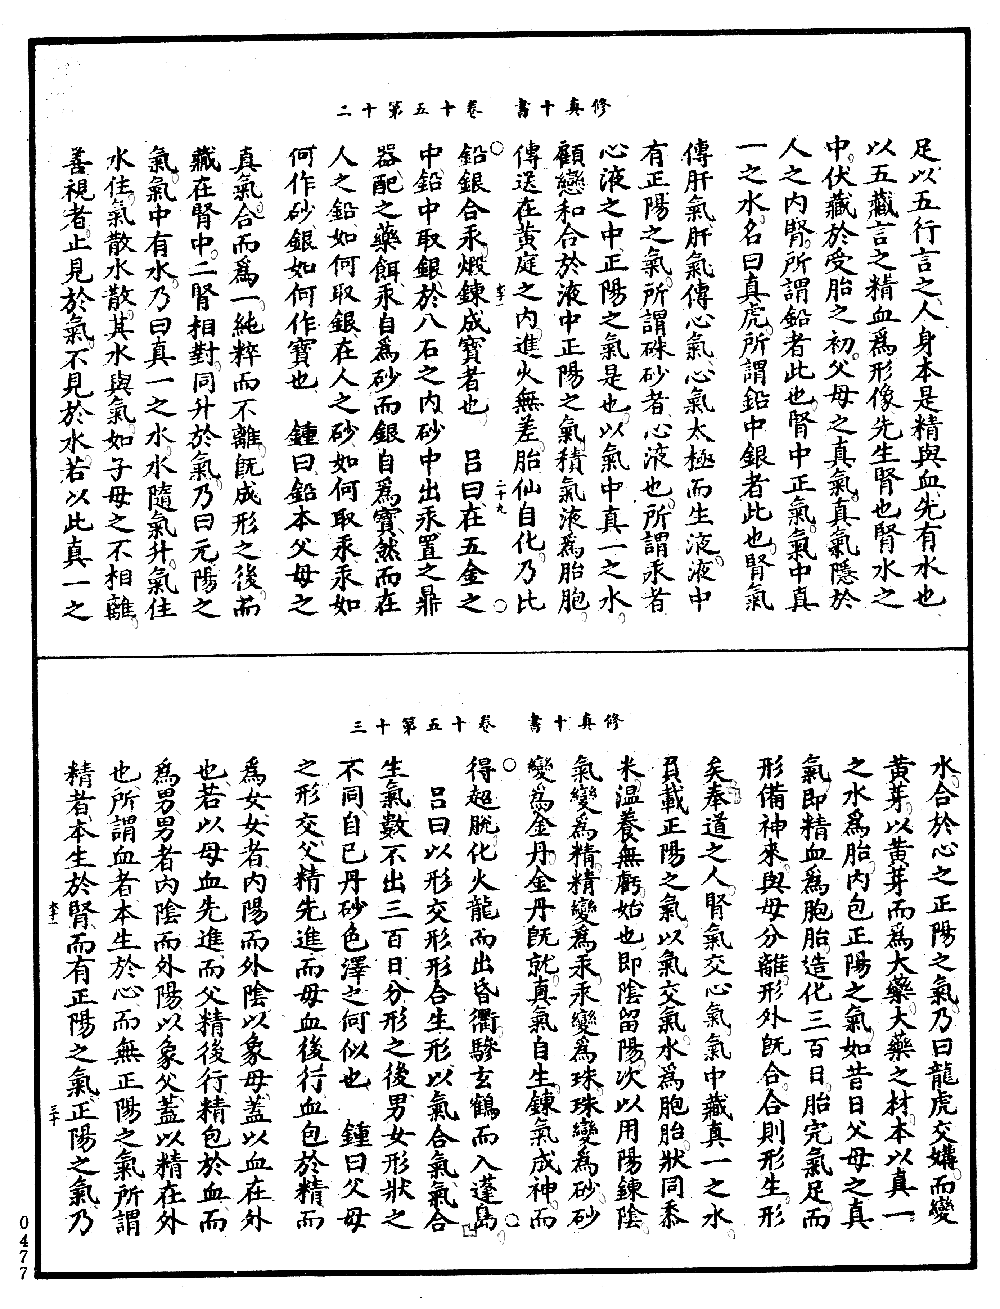 修真十書　卷十五第十二
足以五行言之人身本是精與血先有水也
以五藏言之精血爲形像先生腎也腎水之
中伏藏於受胎之初父母之真氣真氣隱於
人之內腎所謂鉛者此也腎中正氣氣中真
一之水名曰真虎所謂鉛中銀者此也腎氣
傳肝氣肝氣傳心氣心氣太極而生液液中
有正陽之氣所謂硃砂者心液也所謂汞者
心液之中正陽之氣是也以氣中真一之水
顧戀和合於液中正陽之氣積氣液爲胎胞
傳送在黃庭之內進火無差胎仙自化乃比
鉛銀合汞煅鍊成寶者也　吕曰在五金之
中鉛中取銀於八石之內砂中出汞置之鼎
器配之藥餌汞自爲砂而銀自爲寶然而在
人之鉛如何取銀在人之砂如何取汞汞如
何作砂銀如何作寶也　鍾曰鉛本父母之
真氣合而爲一純粹而不離旣成形之後而
藏在腎中二腎相對同升於氣乃曰元陽之
氣氣中有水乃曰真一之水水隨氣升氣住
水住氣散水散其水與氣如子母之不相離
善視者止見於氣不見於水若以此真一之
二十九
修真十書　卷十五第十三
水合於心之正陽之氣乃曰龍虎交媾而變
黃芽以黃芽而爲大藥大藥之材本以真一
之水爲胎內包正陽之氣如昔日父母之真
氣即精血爲胞胎造化三百日胎完氣足而
形備神來與母分離形外旣合合則形生形
矣奉道之人腎氣交心氣氣中藏真一之水
負載正陽之氣以氣交氣水爲胞胎狀同黍
米溫養無虧始也即陰留陽次以用陽鍊陰
氣變爲精精變爲汞汞變爲珠珠變爲砂砂
變爲金丹金丹旣就真氣自生鍊氣成神而
得超脫化火龍而出昏衢驂玄鶴而入蓬島
吕曰以形交形形合生形以氣合氣氣合
生氣數不出三百日分形之後男女形狀之
不同自已丹砂色澤之何似也　鍾曰父母
之形交父精先進而母血後行血包於精而
爲女女者內陽而外陰以象母蓋以血在外
也若以母血先進而父精後行精包於血而
爲男男者內陰而外陽以象父蓋以精在外
也所謂血者本生於心而無正陽之氣所謂
精者本生於腎而有正陽之氣正陽之氣乃
三十
0477